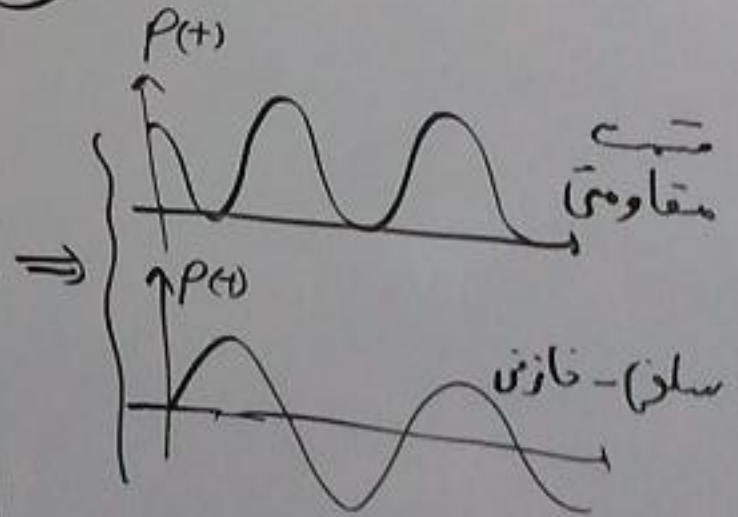 P(t)
قسمت
مقاومتی
⇒
P(t)
سلفی - خازنی